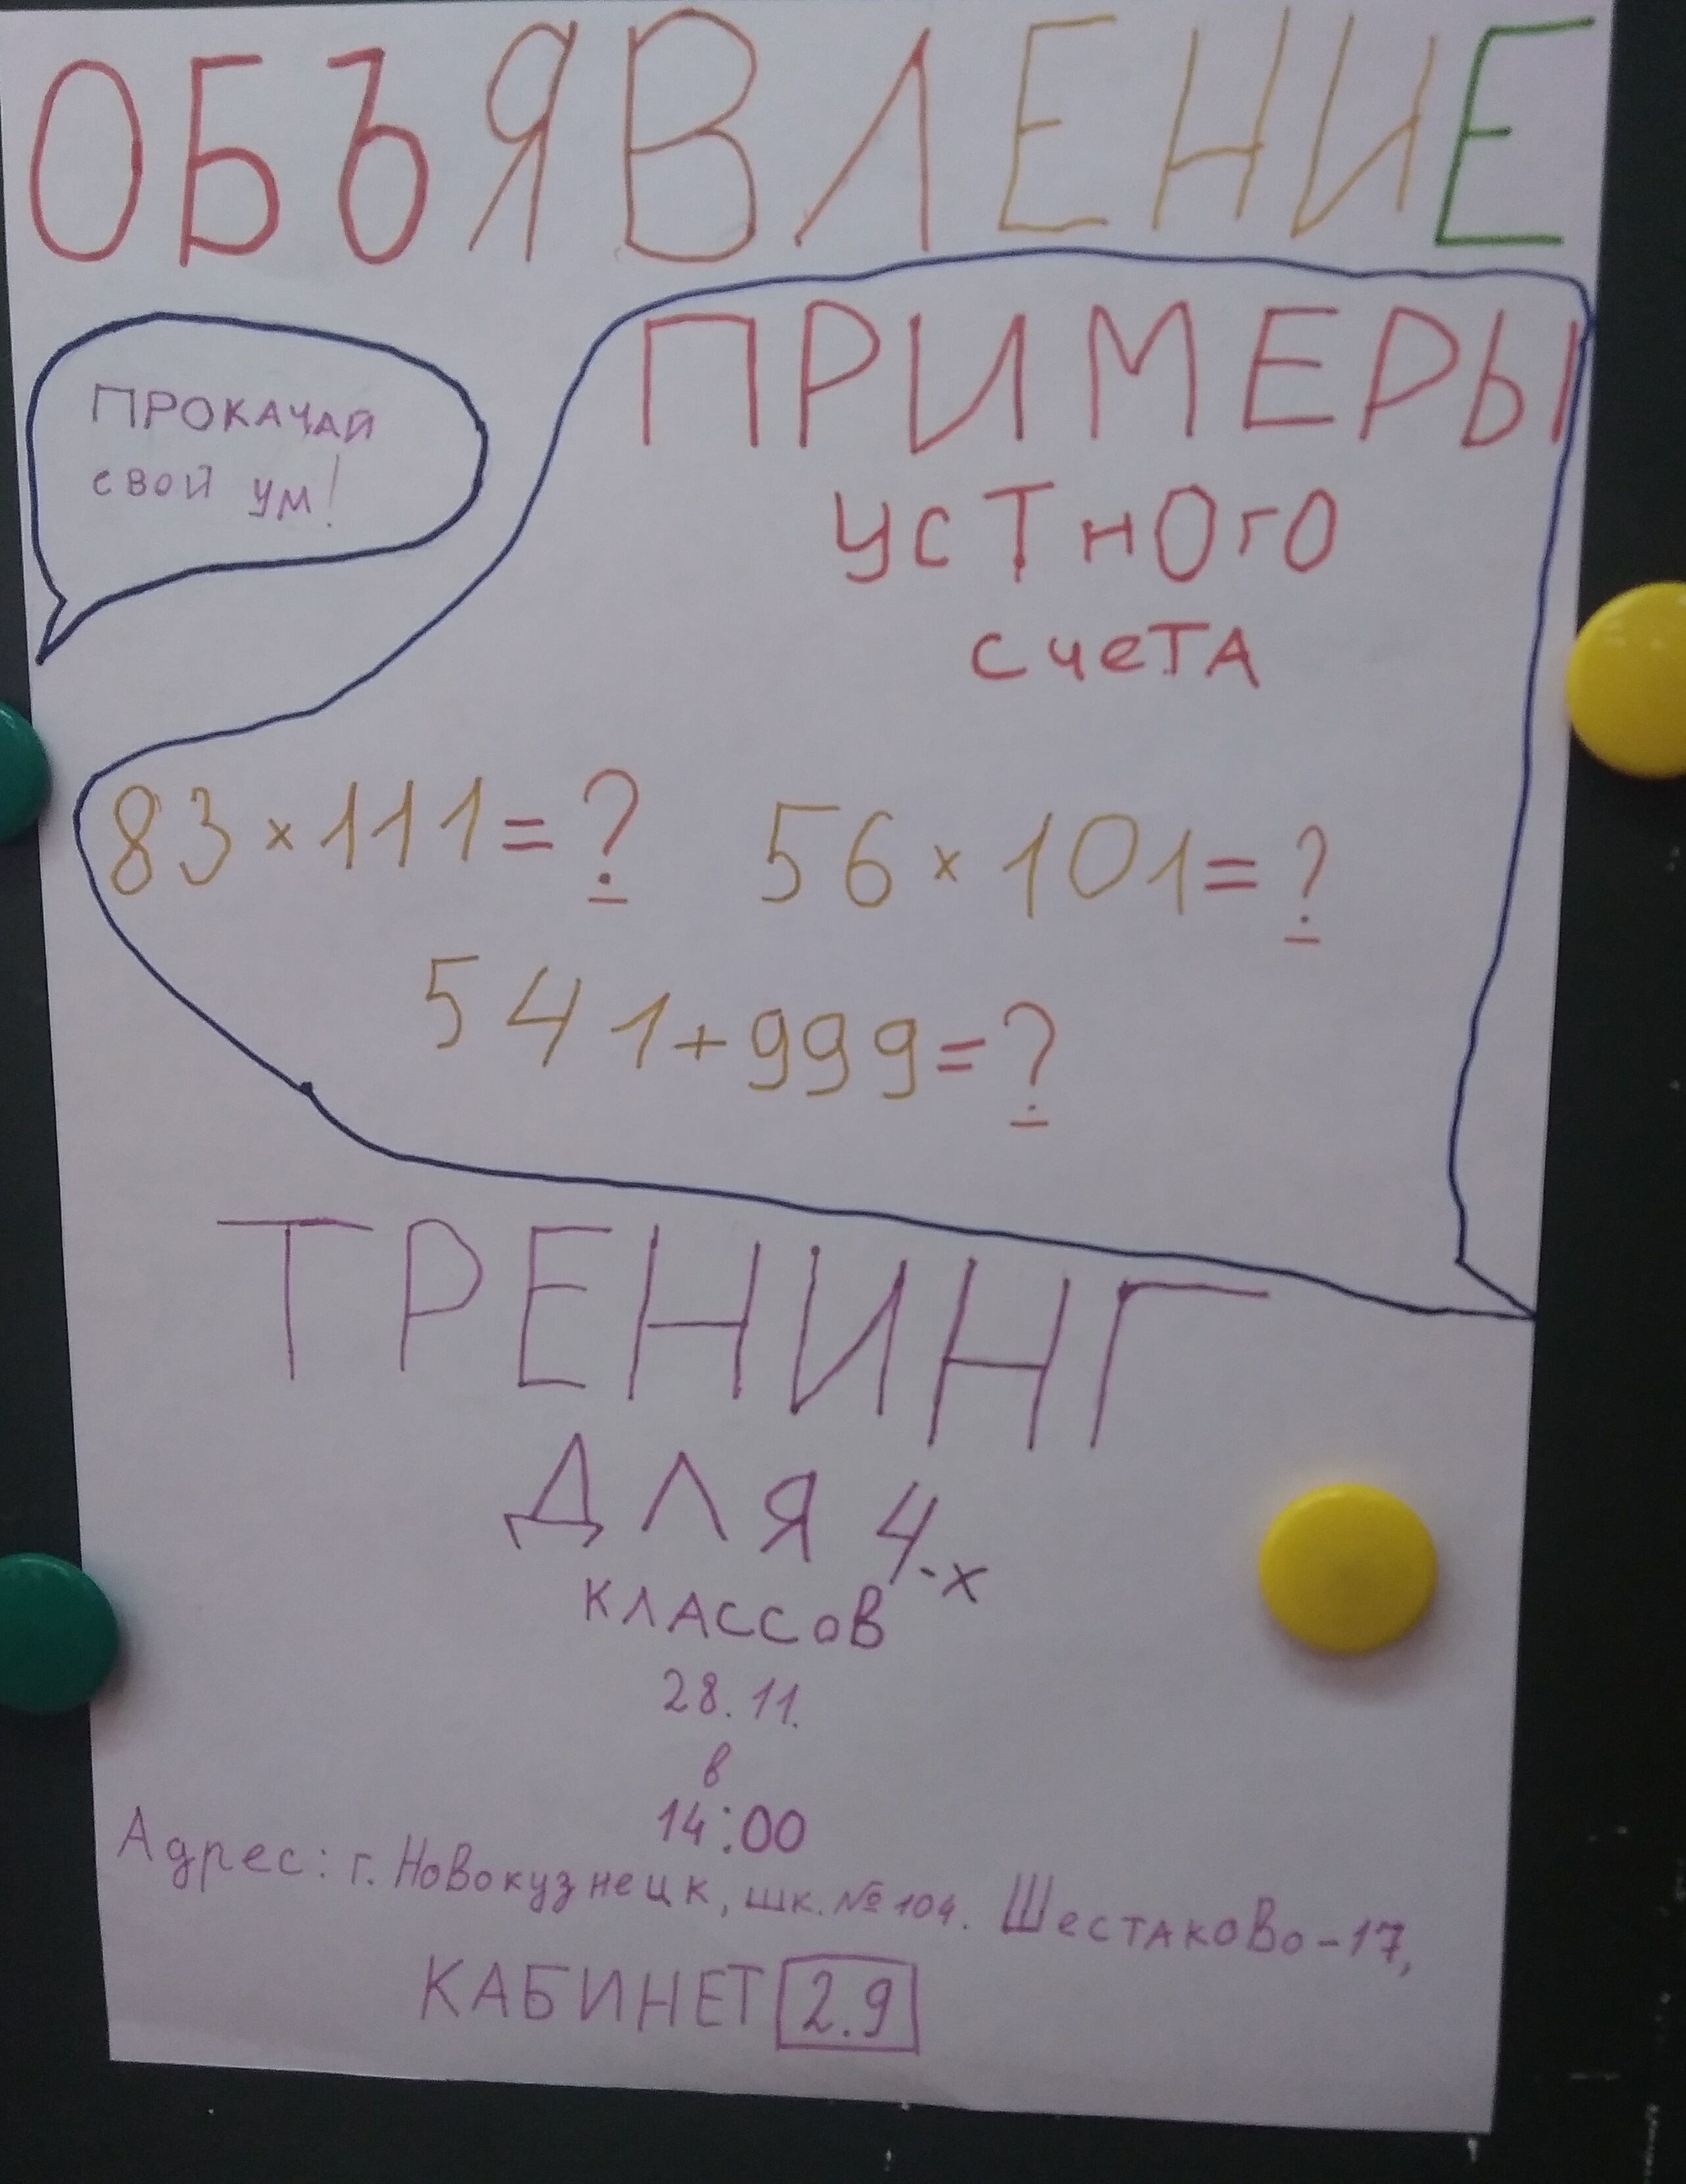 ОБЪЯВЛЕНИЕ
ПРОКАЧАЙ
свой ум!
ПРИМЕРЫ
устного
счета
83×111=?
56×101=?
541+999=?
ТРЕНИНГ
ДЛЯ 4-х
КЛАССОВ
28.11.
в
14:00
Адрес: г. Новокузнецк, шк. №104. Шестаково-17,
КАБИНЕТ 2.9